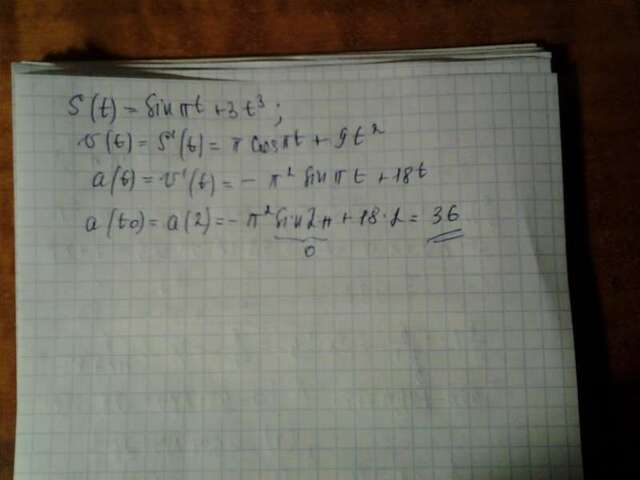 S(t) = sin πt + 3t³;
v(t) = S'(t) = π cos πt + 9t²
a(t) = v'(t) = - π² sin πt + 18t
a(t0) = a(2) = - π² sin 2π + 18·2 = 36
0